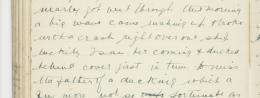 nearly got wet through this morning
a big wave came rushing up & broke
with a crash right over our ship
luckily I saw her coming & ducked
behind cover just in time to miss
the father of a ducking which a
few more not so fortunate as